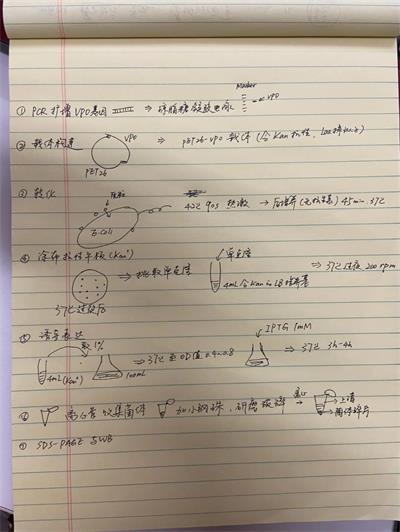 Marker
① PCR扩增VPO基因 ⇒ 琼脂糖凝胶电泳 VPO
② 载体构建 VPO ⇒ pET26-VPO 载体(含Kan抗性,
pET26
③ 转化 E-Coli 42℃ 90s 热激 → 后培养(无抗生素) 45min 37℃
④ 涂布抗性平板(Kan⁺) 单克隆
⇒ 挑取单克隆 4mL含Kan LB培养基 ⇒ 37℃过夜 200rpm
37℃过夜
⑤ 诱导表达 IPTG 1mM
取1%
4mL(Kan⁺) 100mL ⇒ 37℃至OD值0.4~0.8 ⇒ 37℃ 3h-4h
⑥ 离心管收集菌体 加小钢珠, 研磨破碎 离心 → 上清
菌体碎片
⑦ SDS-PAGE 与WB